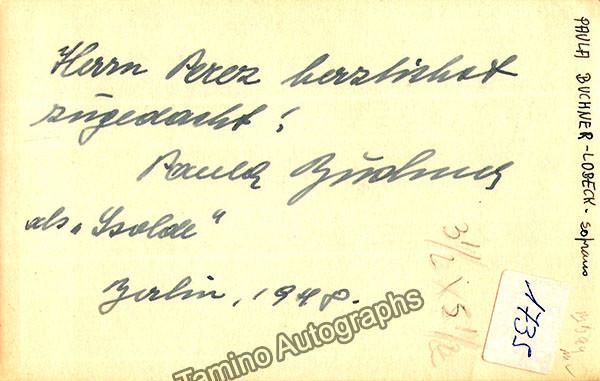 Herrn Perez herzlichst
zugedacht!
Paula Büchner
als „Isolde“
Berlin, 1948.
PAULA BUCHNER-LOBECK - soprano
3 1/2 X 5 1/2
1735
Tamino Autographs